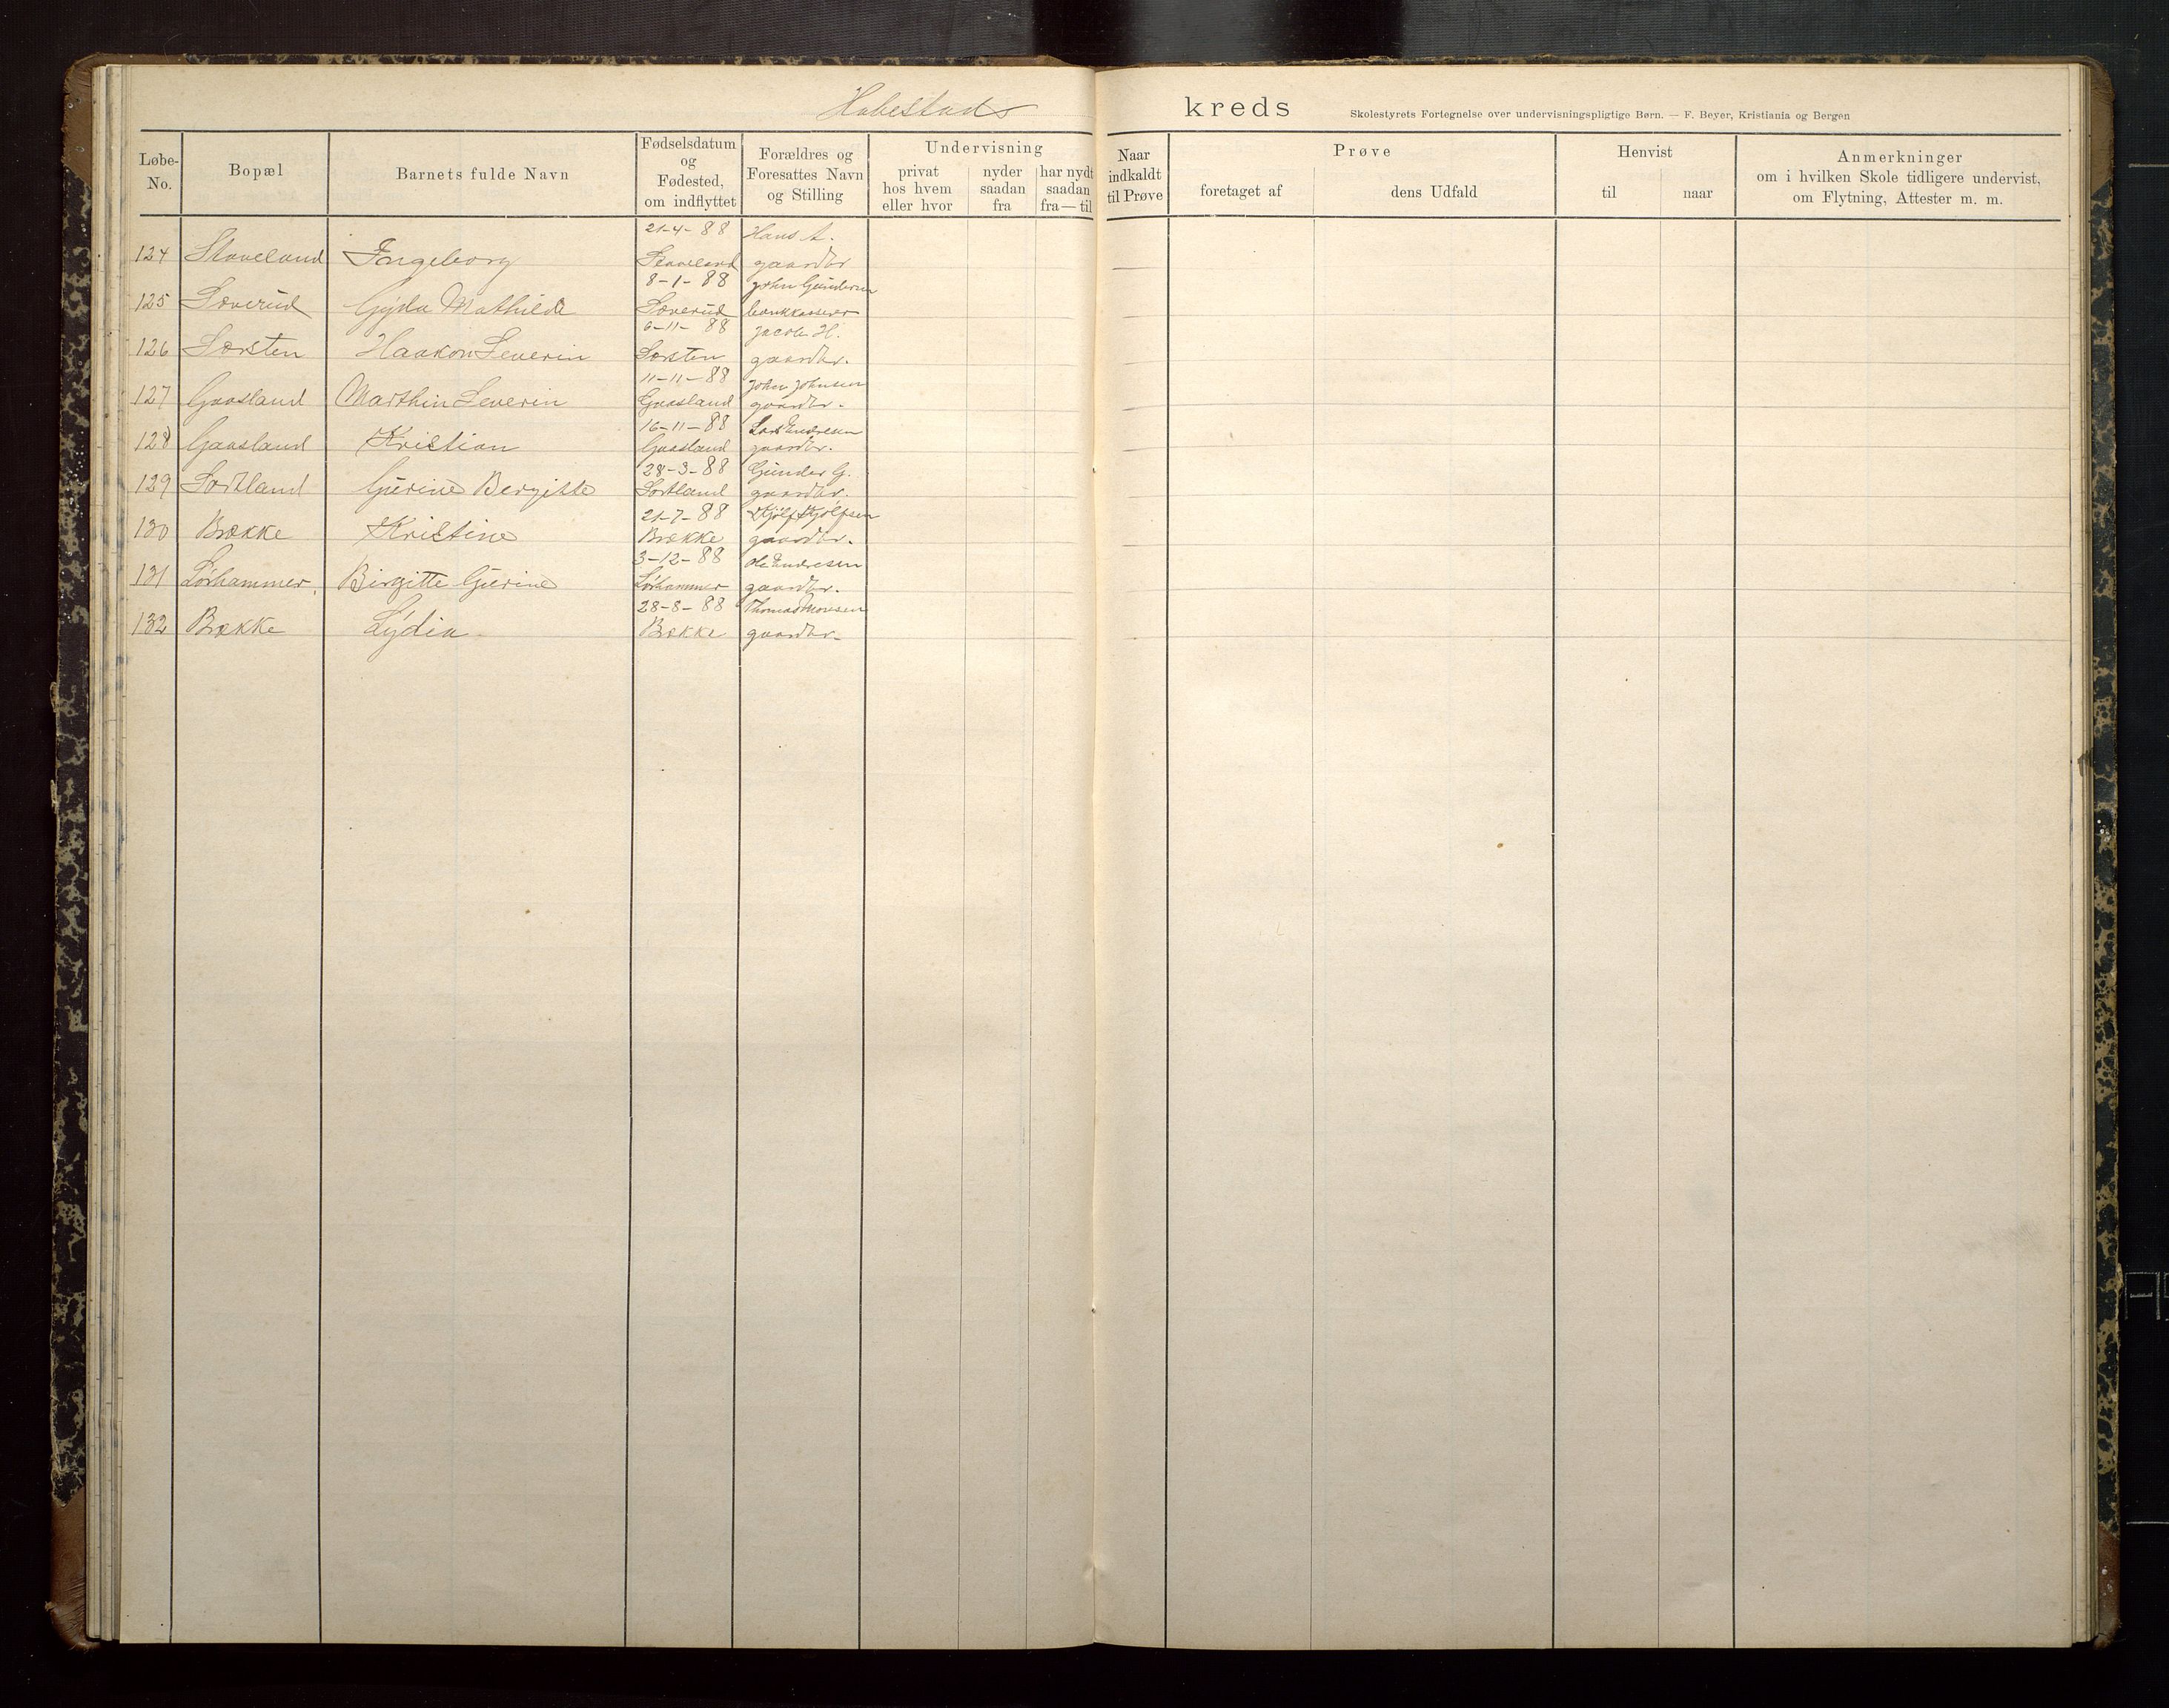 Habestads kreds Skolestyrets Fortegnelse over undervisningspligtige Børn. — F. Beyer, Kristiania og Bergen
Løbe-No. Bopæl Barnets fulde Navn Fødselsdatum og Fødested, om indflyttet Forældres og Foresattes Navn og Stilling Undervisning privat hos hvem eller hvor nyder saadan fra har nydt saadan fra — til Naar indkaldt til Prøve Prøve foretaget af dens Udfald Henvist til naar Anmerkninger om i hvilken Skole tidligere undervist, om Flytning, Attester m. m.
21-4-88 Hans A.
124 Staveland Ingeborg Staveland gaardbr
8-1-88 John Gundersen
125 Sæverud Gyda Mathilde Sæverud bankkasserer
6-11-88 Jacob H.
126 Sørsten Haakon Severin Sørsten gaardbr.
11-11-88 John Johnsen
127 Gaasland Marthin Severin Gaasland gaardbr.
16-11-88 Lars Endresen
128 Gaasland Kristian Gaasland gaardbr.
28-3-88 Gunder G.
129 Sortland Gurine Bergitte Sortland gaardbr.
21-7-88
130 Brække Kristine Brække gaardbr.
3-12-88 Ole Endresen
131 Lørhammer, Birgitte Gurine Lørhammer gaardbr.
28-8-88 Thomas Monsen
132 Brække Lydia Brække gaardbr.